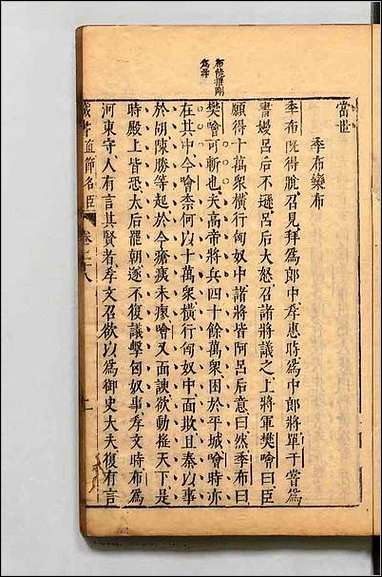 布能摧剛
為柔
當世
季布欒布
季布既得脫召見拜為郎中孝惠時為中郎將單于嘗為
書嫚呂后不遜呂后大怒召諸將議之上將軍樊噲曰臣
願得十萬衆橫行匈奴中諸將皆阿呂后意曰然季布曰
樊噲可斬也夫高帝將兵四十餘萬衆困於平城噲時亦
在其中今噲柰何以十萬衆橫行匈奴中面欺且秦以事
於胡陳勝等起於今瘡痍未瘳噲又面諛欲動搖天下是
時殿上皆恐太后罷朝遂不復議擊匈奴事孝文時布為
河東守人有言其賢者孝文召欲以為御史大夫復有言
直節名臣 卷二八